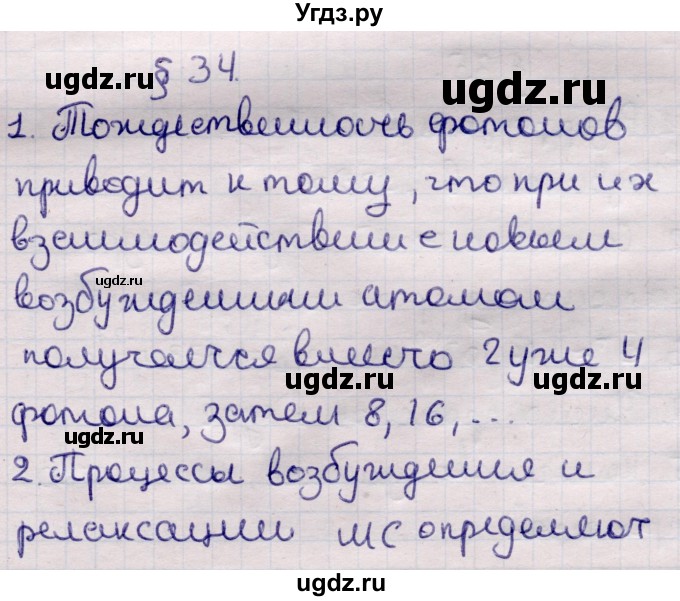 Угдз.ру
ugdz.ru
§ 34.
ugdz.ru
1. Тождественность фотонов
приводит к тому, что при их
взаимодействии с новым
ugdz.ru
возбужденным атомом
получается вместо 2 уже 4
ugdz.ru
ugdz.ru
фотона, затем 8, 16, ...
ugdz.ru
2. Процессы возбуждения и
релаксации МС определяют
ugdz.ru
ugdz.ru